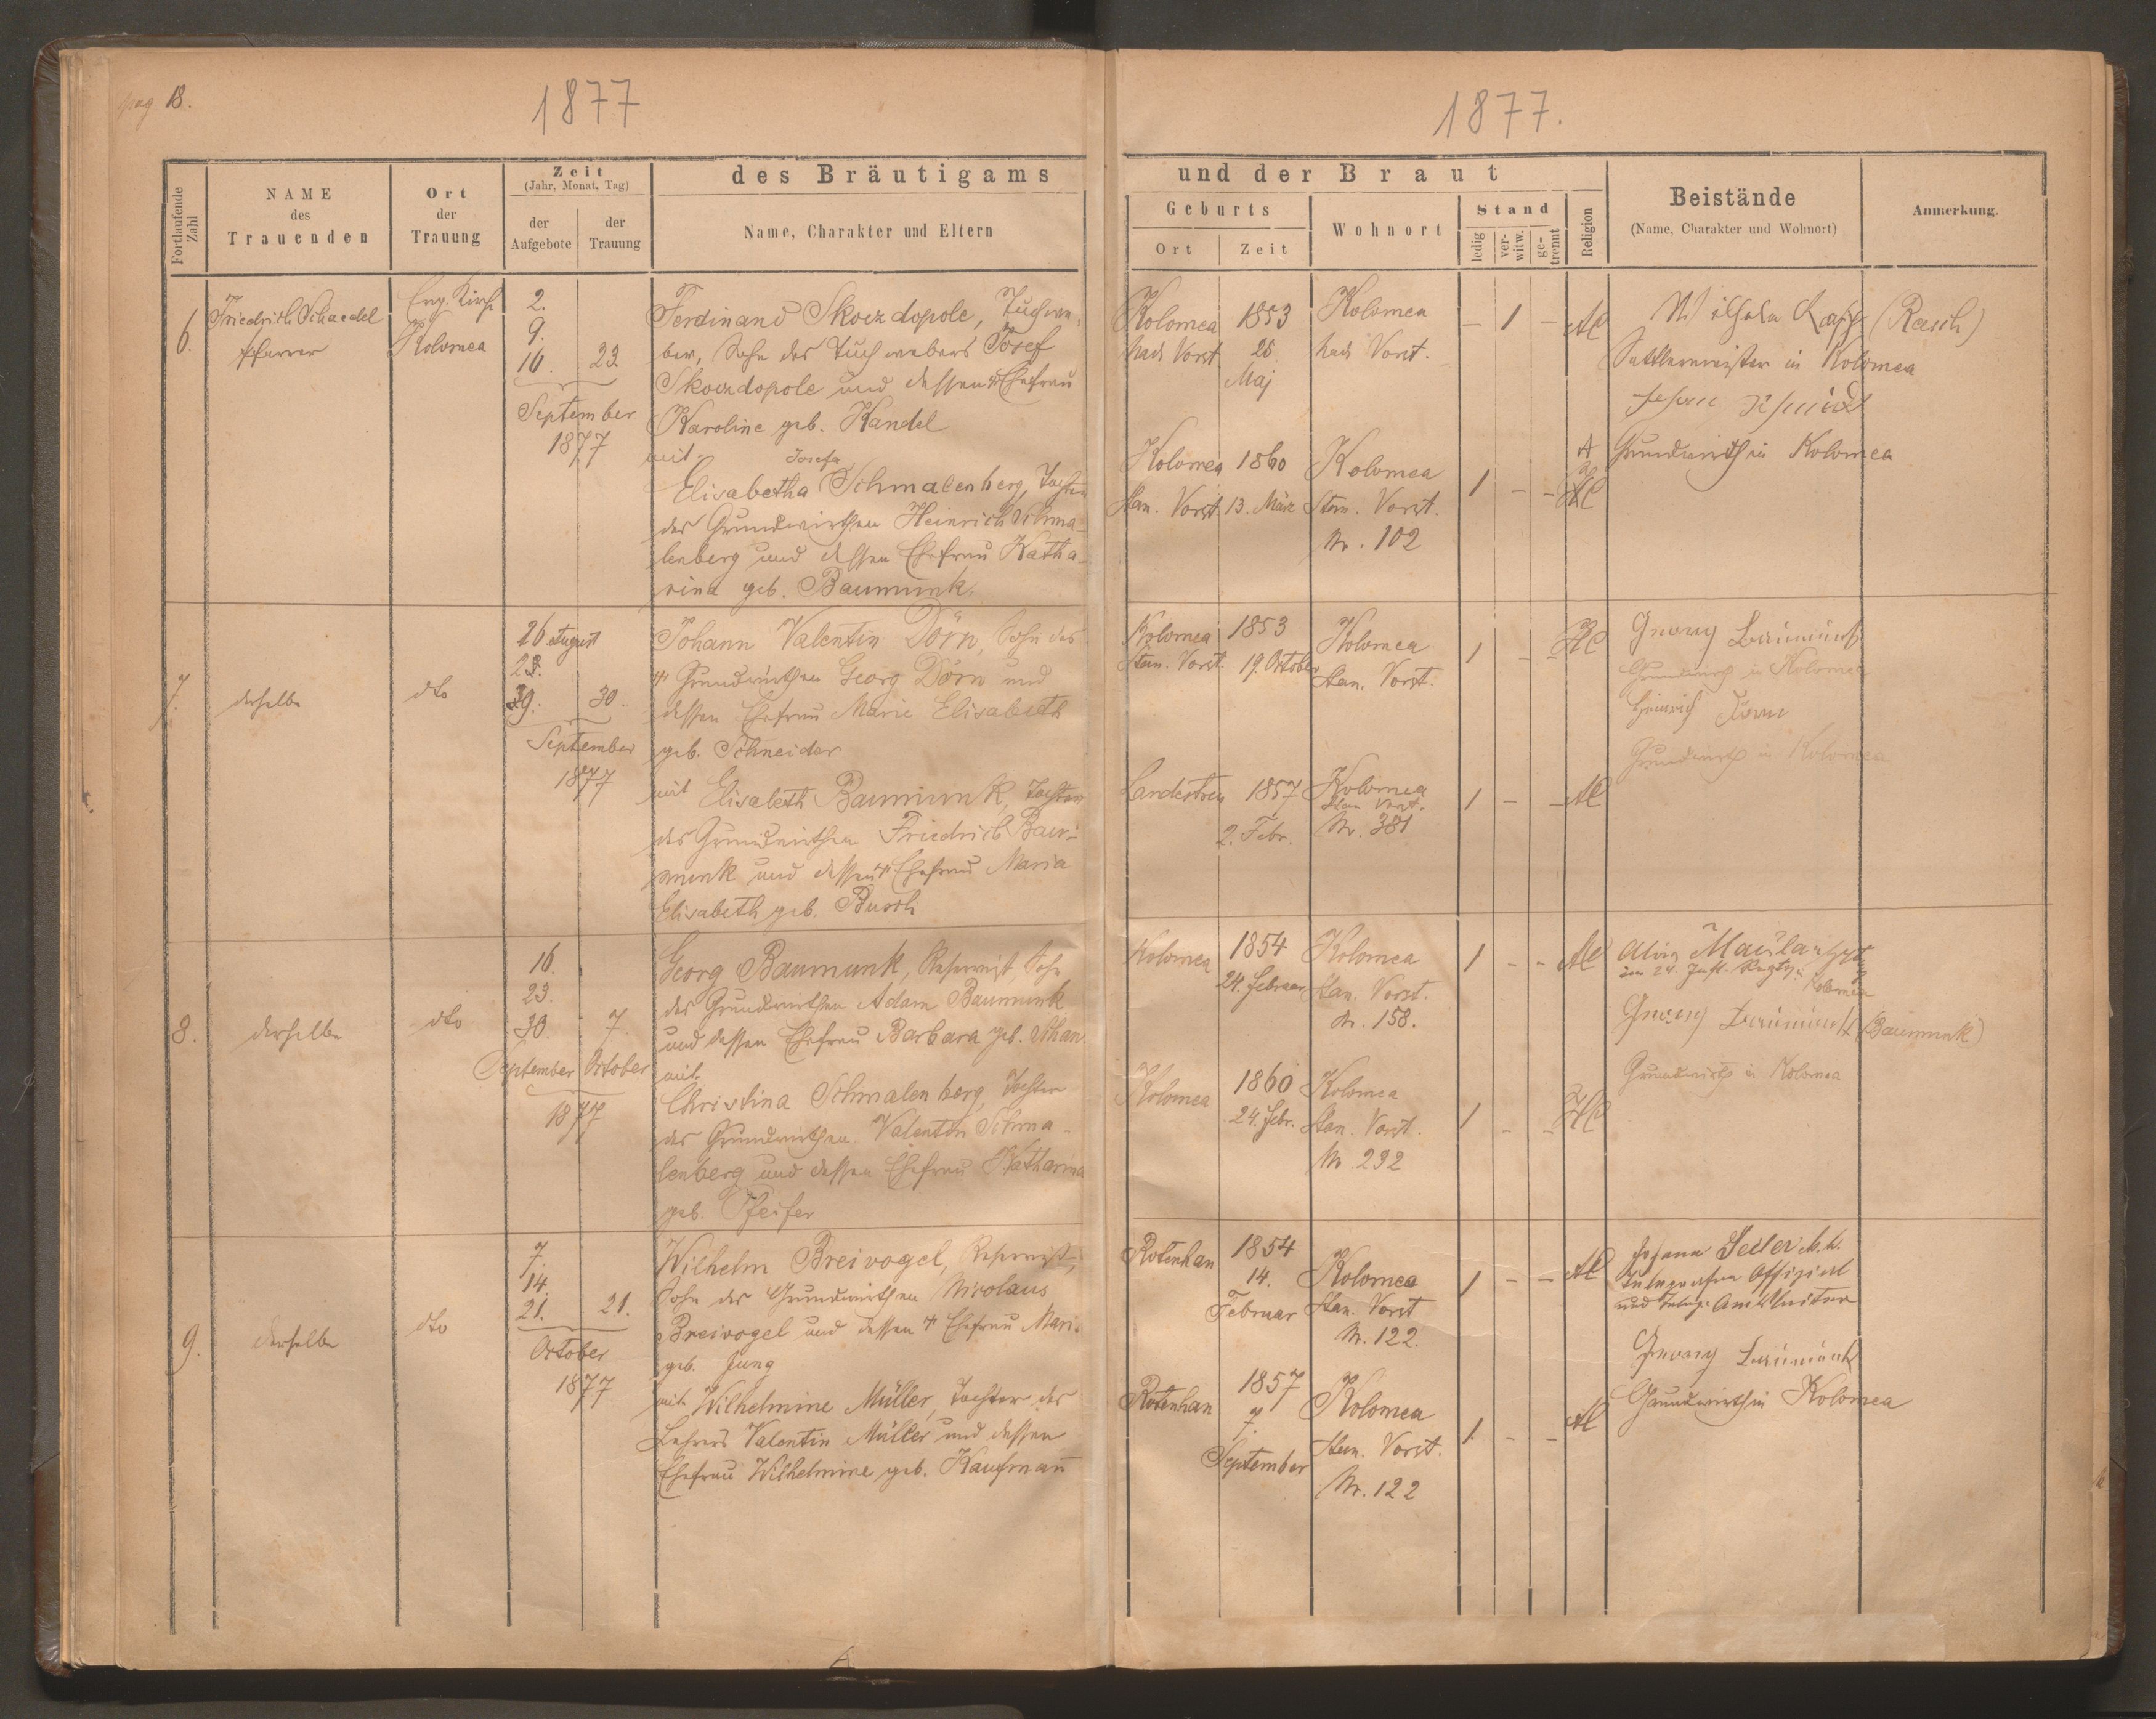 pag 18.
1877
1877.
Fortlaufende Zahl
NAME des Trauenden
Ort der Trauung
Zeit
(Jahr, Monat, Tag)
der Aufgebote
der Trauung
des Bräutigams
Name, Charakter und Eltern
und der Braut
Geburts
Ort
Zeit
Wohnort
Stand
ledig
ver-witw.
ge-trennt
Religion
Beistände
(Name, Charakter und Wohnort)
Anmerkung.
6.
Friedrich Schaedel
Pfarrer
Evg. Kirche
Kolomea
2.
9.
16. 23.
September
1877
Ferdinand Skoczdopole, Tuchwe-
ber, Sohn des Tuchwebers Josef
Skoczdopole und dessen + Ehefrau
Karoline geb. Kandel
mit
Josefa
Elisabetha Schmalenberg, Tochter
des Grundwirthen Heinrich Schma-
lenberg und dessen Ehefrau Katha-
rina geb. Baumunk
Kolomea
Nad. Vorst.
1853
25.
Maj
Kolomea
Nad. Vorst.
– 1 –
AC
Kolomea
Stan. Vorst.
1860
13. März
Kolomea
Stan. Vorst.
Nr. 102
1 – –
HC
Wilhelm Rasch (Rasch)
Sattlermeister in Kolomea
Grundwirth in Kolomea
7.
derselbe
dto
26 August
29. 30.
September
1877
Johann Valentin Dörn, Sohn des
+ Grundwirthen Georg Dörn und
dessen Ehefrau Marie Elisabeth
geb. Schneider
mit Elisabeth Baumunk, Tochter
des Grundwirthen Friedrich Bau-
munk und dessen + Ehefrau Maria
Elisabeth geb. Busch
Kolomea
Stan. Vorst.
1853
19. October
Kolomea
Stan. Vorst.
1 – –
HC
Landestreu
1857
2. Febr.
Kolomea
Stan. Vorst.
Nr. 381
1 – –
AC
Georg Baumunk
Grundwirth in Kolomea
Heinrich Dörn
Grundwirth in Kolomea
8.
derselbe
dto
16.
23.
30. 7.
September October
1877
Georg Baumunk, Reservist, Sohn
des Grundwirthen Adam Baumunk
und dessen Ehefrau Barbara geb. Schan
mit
Christina Schmalenberg, Tochter
des Grundwirthen Valentin Schma-
lenberg und dessen Ehefrau Katharina
geb. Pfeifer
Kolomea
1854
24. Februar
Kolomea
Stan. Vorst.
Nr. 158.
1 – –
AC
Kolomea
1860
24. Febr.
Kolomea
Stan. Vorst.
Nr. 292
1 – –
HC
im 24. Inft. Regt. in Kolomea
Georg Baumunk (Baumunk)
Grundwirth in Kolomea
9.
derselbe
dto
7.
14.
21. 21.
October
1877
Wilhelm Breivogel, Reservist,
Sohn des Grundwirthen Nicolaus
Breivogel und dessen + Ehefrau Marie
geb. Jung
mit Wilhelmine Müller, Tochter des
Lehrers Valentin Müller und dessen
Ehefrau Wilhelmine geb. Kaufmann̄
Rotenhan
1854
14.
Februar
Kolomea
Stan. Vorst
Nr. 122.
1 – –
AC
Rotenhan
1857
7.
September
Kolomea
Stan. Vorst.
Nr. 122
1 – –
AC
Johann Seiler k.k.
Telegrafen Offizial
und Telegr. Amtsleiter
Georg Baumunk
Grundwirth in Kolomea